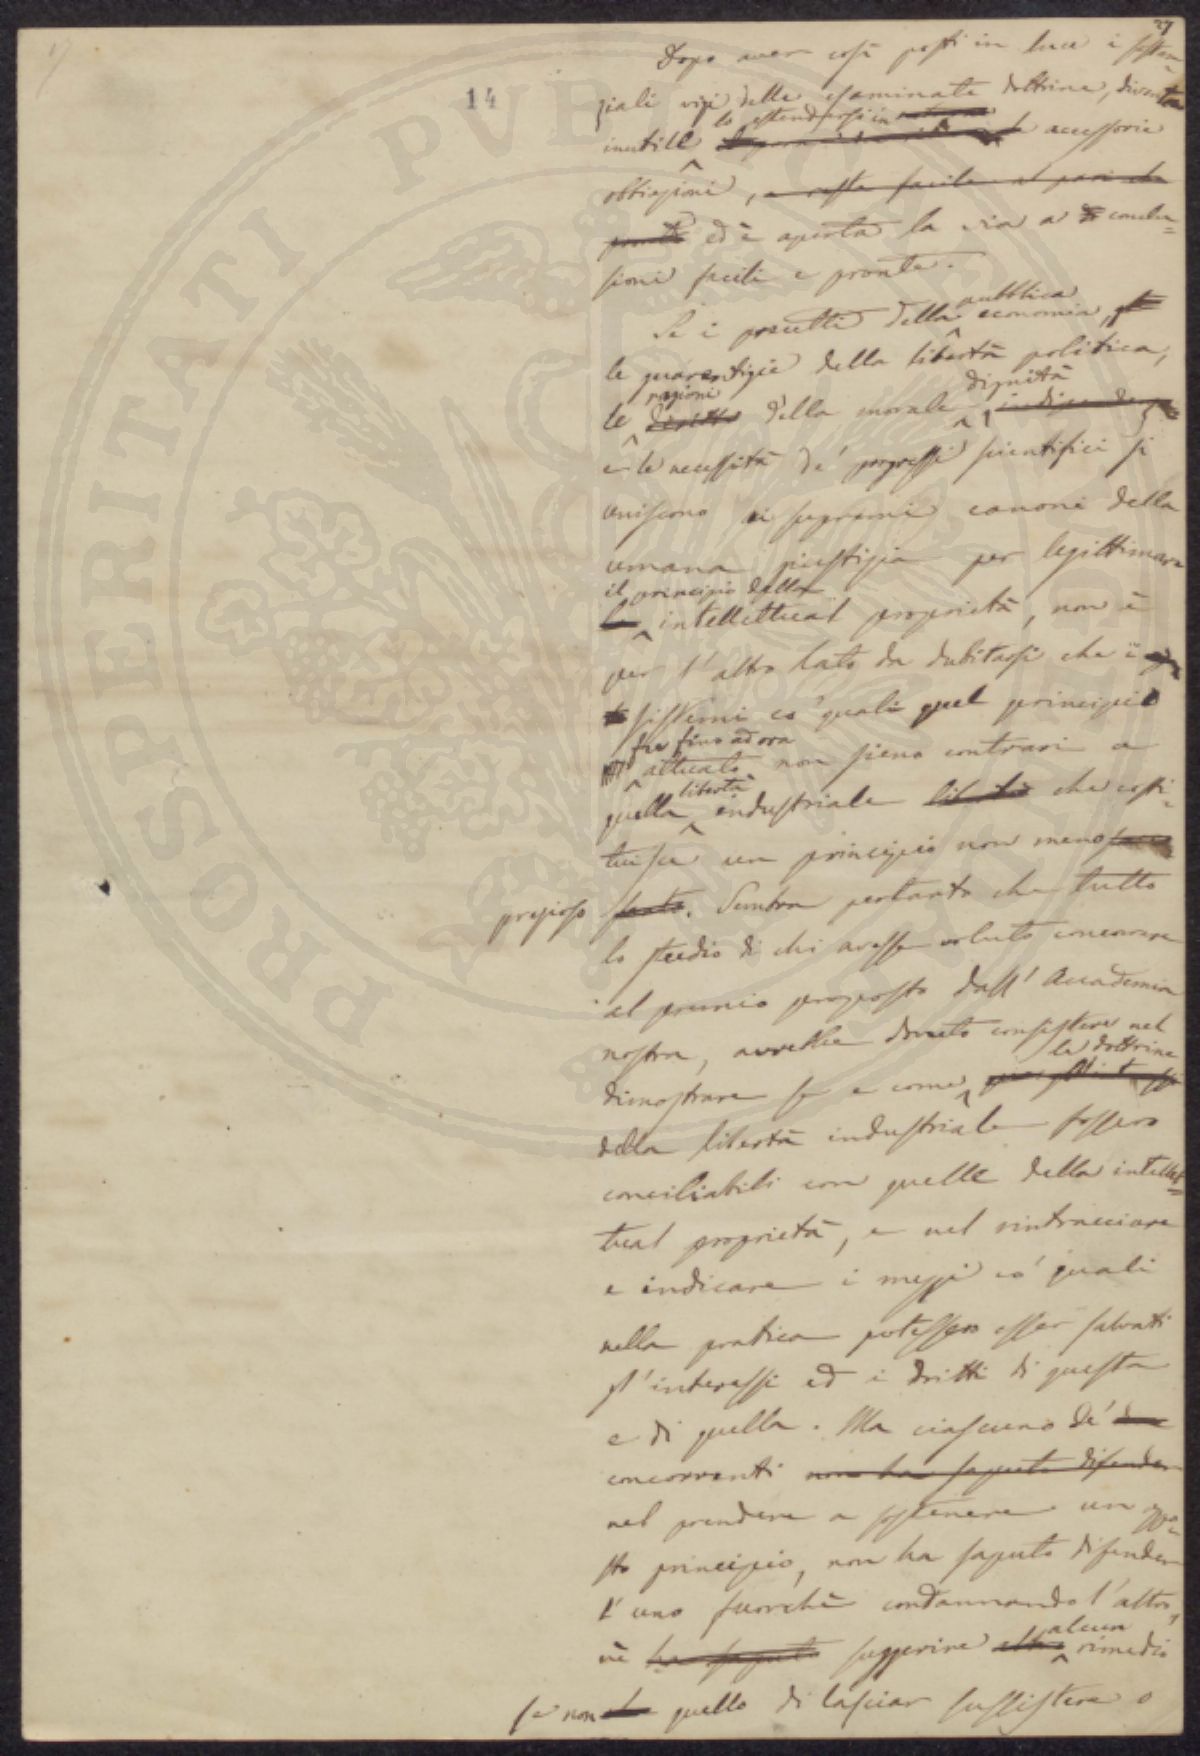 27
14
Dopo aver così posti in luce i sostan=
ziali vizi delle esaminate dottrine, diventa
lo estendersi in
inutile accessorie
obbiezioni, e resta facile al pari che
pronta ed è aperta la via a conclu=
sioni facili e pronte.
pubblica
Se i precetti della economia,
le guarentigie della libertà politica,
ragioni dignità
le diritto della morale, indipendenza
e le necessità de' progressi scientifici si
uniscono ai supremi canoni della
umana giustizia per legittimare
il principio della
la intellettual proprietà, non è
per l'altro lato da dubitarsi che i
sistemi co' quali quel principio
fu fino ad ora
attuato non sieno contrari a
libertà
quella industriale libertà che costi=
tuisce un principio non meno
prezioso santo. Sembra pertanto che tutto
lo studio di chi avesse voluto concorrere
al premio proposto dall'Accademia
nostra, avrebbe dovuto consistere nel
le dottrine
dimostrare se e come
della libertà industriale fossero
conciliabili con quelle della intellet=
tual proprietà, e nel rintracciare
e indicare i mezzi co' quali
nella pratica potessero esser salvati
gl'interessi ed i dritti di questa
e di quella. Ma ciascuno de' due
concorrenti non ha saputo difender
nel prendere a sostenere un oppo=
sto principio, non ha saputo difender
l'uno fuorchè condannando l'altro,
alcun
nè ha saputo suggerire altro rimedio
se non che quello di lasciar sussistere o